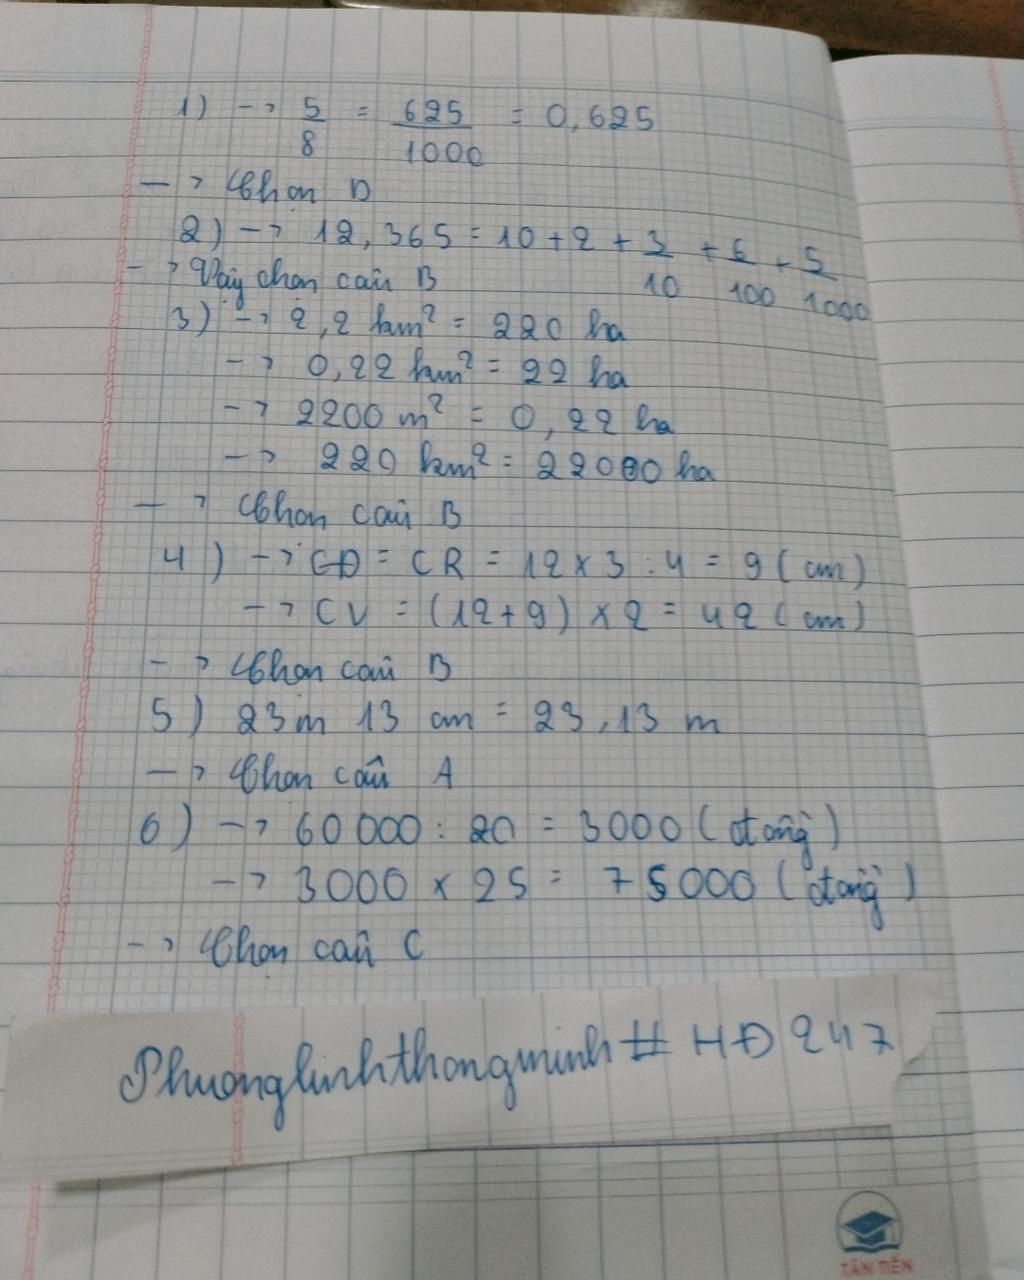 1) -> 5/8 = 625/1000 = 0,625
-> Chọn D
2) -> 12,365 = 10 + 2 + 3/10 + 6/100 + 5/1000
-> Vậy chọn câu B
3) -> 2,2 km² = 220 ha
-> 0,22 km² = 22 ha
-> 2200 m² = 0,22 ha
-> 220 km² = 22000 ha
-> Chọn câu B
4) -> CD = CR = 12 x 3 : 4 = 9 (cm)
-> CV = (12+9) x 2 = 42 (cm)
-> Chọn câu B
5) 23m 13 cm = 23,13 m
-> Chọn câu A
6) -> 60 000 : 20 = 3000 (đồng)
-> 3000 x 25 = 75000 (đồng)
-> Chọn câu C
Phuonglinhthongminh # HĐ 247
TÂN TIẾN